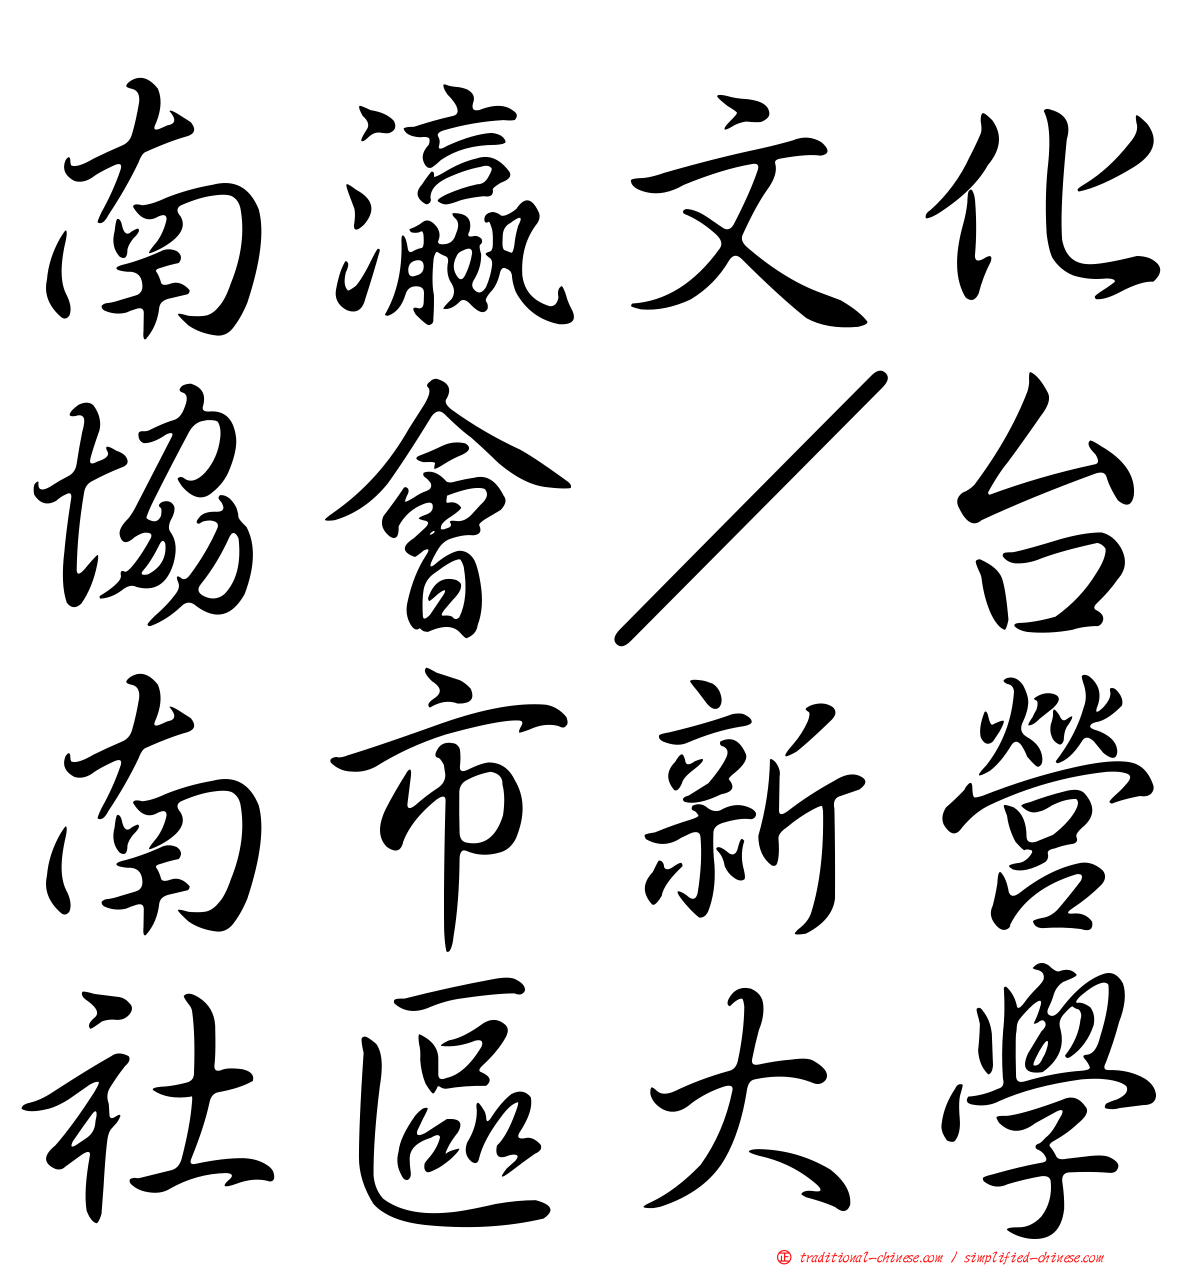 南瀛文化
協會／台
南市新營
社區大學
正 traditional-chinese.com / simplified-chinese.com